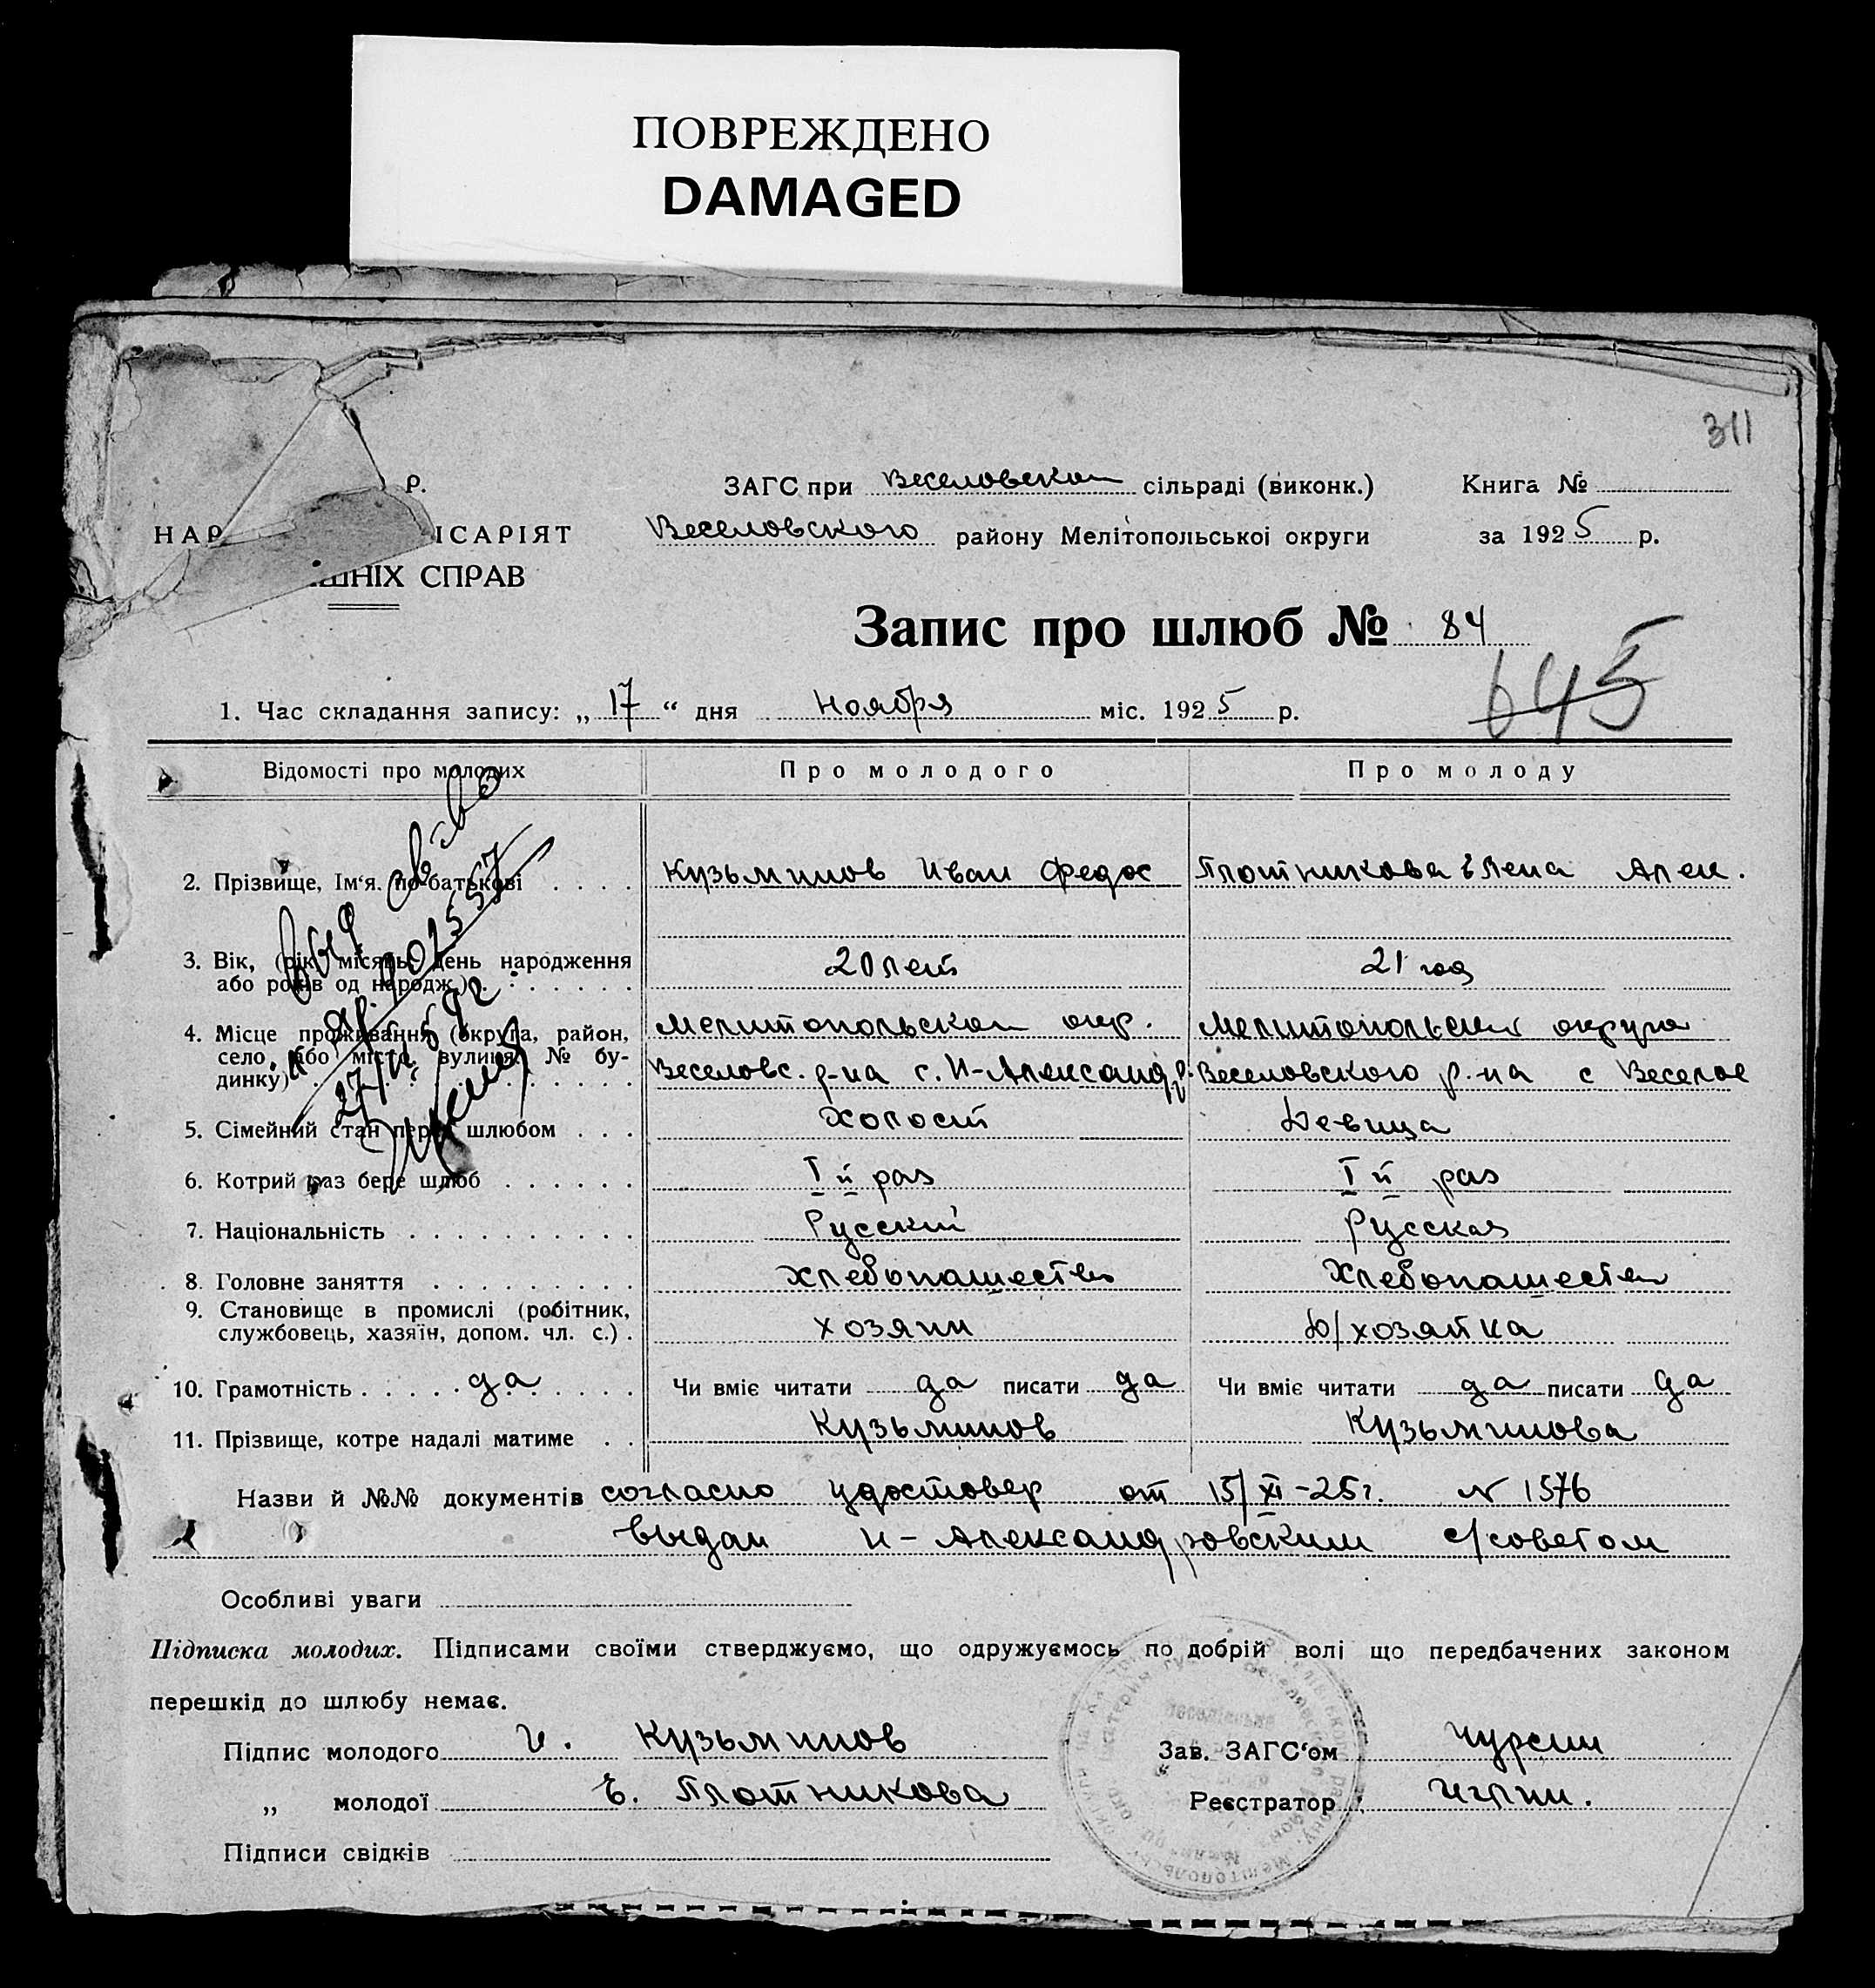 ПОВРЕЖДЕНО
DAMAGED
311
Р. ЗАГС при Веселовском сільраді (виконк.) Книга №
НАР ІСАРІЯТ Веселовского району Мелітопольської округи за 1925 р.
ІШНІХ СПРАВ
Запис про шлюб № 84
645
1. Час складання запису: „17“ дня Ноября міс. 1925 р.
Відомості про молодих Про молодого Про молоду
2. Прізвище, Ім'я. по-батькові . . . . Кузьминов Иван Федос Плотникова Елена Алек.
3. Вік, (рік, місяць, день народження 20 лет 21 год
або років од народж.) . . . . . . .
4. Місце проживання (округа, район, Мелитопольской окр. Мелитопольский округа
село, або місто, вулиця, № бу- Веселовс. р-на с. Н-Александр. Веселовского р-на с Веселое
динку) . . . . . . . . . .
5. Сімейний стан перед шлюбом . . . Холост Девица
6. Котрий раз бере шлюб . . . . . . I й раз I й раз
7. Національність . . . . . . . . . . Русский Русская
8. Головне заняття . . . . . . . . . Хлебопашество Хлебопашество
9. Становище в промислі (робітник, хозяин д/хозяйка
службовець, хазяїн, допом. чл. с.) .
10. Грамотність . . . . да . . . . . Чи вміє читати да писати да Чи вміє читати да писати да
11. Прізвище, котре надалі матиме . . Кузьминов Кузьминова
выд св-во
27/V 59г
Назви й №№ документів согласно удостовер от 15/XI-25г. N 1576
выдан Н-Александровским с/советом
Особливі уваги
Підписка молодих. Підписами своїми стверджуємо, що одружуємось по добрій волі що передбачених законом
перешкід до шлюбу немає.
Підпис молодого И. Кузьминов Зав. ЗАГС'ом Чурсин
„ молодої Е. Плотникова Реєстратор
Підписи свідків